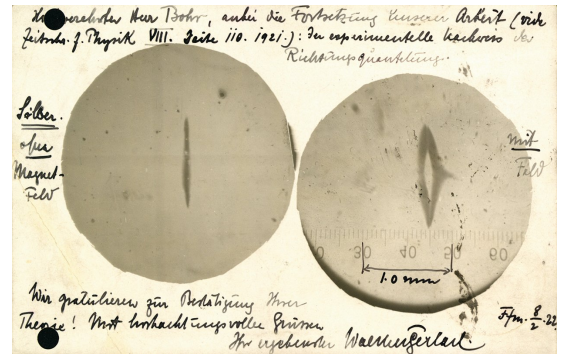 Hochverehrter Herr Bohr, anbei die Fortsetzung unserer Arbeit (vide
Zeitschr. f. Physik VIII. Seite 110. 1921.): Der experimentelle Nachweis der
Richtungsquantelung.
Silber.
ohne
Magnet-
Feld
mit
Feld
0 30 40 50 60
1.0 mm
Wir gratulieren zur Bestätigung Ihrer
Theorie! Mit hochachtungsvollen Grüssen
Ihr ergebenster Walther Gerlach.
Ffm. 8/2. 22.